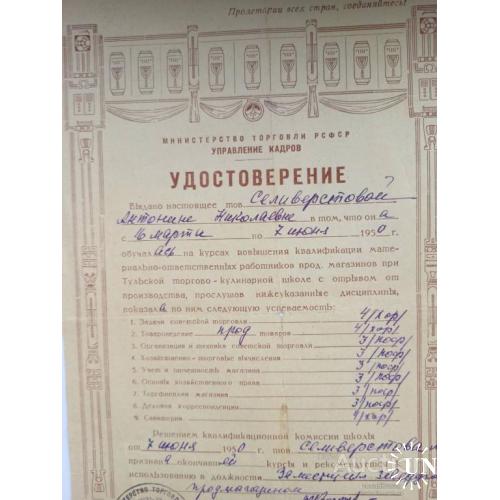 Пролетарии всех стран, соединяйтесь!
МИНИСТЕРСТВО ТОРГОВЛИ РСФСР
УПРАВЛЕНИЕ КАДРОВ
УДОСТОВЕРЕНИЕ
Выдано настоящее тов. Селиверстовой
Антонине Николаевне в том, что он а
с 16 марта по 7 июня 1950 г.
обучалась на курсах повышения квалификации мате-
риально-ответственных работников прод. магазинов при
Тульской торгово-кулинарной школе с отрывом от
производства, прослушав нижеуказанные дисциплины,
показала по ним следующую успеваемость:
1. Задачи советской торговли 4/хор/
2. Товароведение прод. товаров 4/хор/
3. Организация и техника советской торговли 3/поср/
4. Хозяйственно-торговые вычисления 3/поср/
5. Учет и отчетность магазина 3/поср/
6. Основы хозяйственного права 3/поср/
7. Торгфинплан магазина 3/поср/
8. Деловая корреспонденция 3/поср/
9. Санитария 4/хор/
Решением квалификационной комиссии школы
от 7 июня 1950 г. тов. Селиверстова
признана окончившей курсы и
использованию в должности Заместителя зав.
продмагазином
AUC SUN